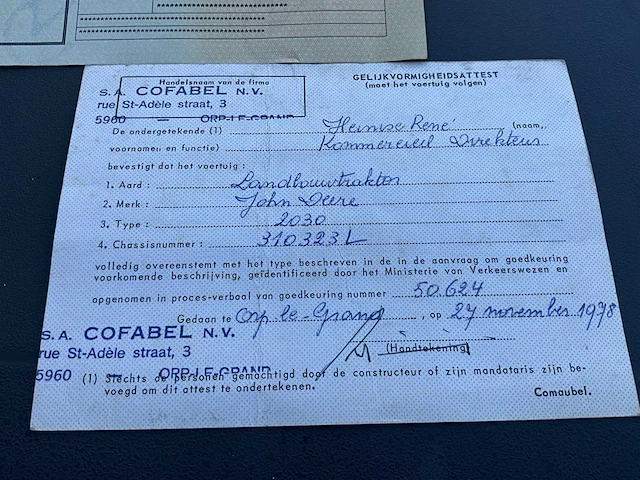 Handelsnaam van de firma
S.A. COFABEL N.V.
rue St-Adèle straat, 3
5960 — ORP-LE-GRAND
GELIJKVORMIGHEIDSATTEST
(moet het voertuig volgen)
De ondergetekende (1) Heinise René (naam,
voornamen en functie) Kommercieel Direkteur
bevestigt dat het voertuig :
1. Aard : Landbouwtraktor
2. Merk : John Deere
3. Type : 2030
4. Chassisnummer : 310323L
volledig overeenstemt met het type beschreven in de in de aanvraag om goedkeuring
voorkomende beschrijving, geïdentificeerd door het Ministerie van Verkeerswezen en
opgenomen in proces-verbaal van goedkeuring nummer 50.624
Gedaan te Orp-le-Grand, op 27 november 1978
(Handtekening)
S.A. COFABEL N.V.
rue St-Adèle straat, 3
5960 — ORP-LE-GRAND
(1) Slechts de personen gemachtigd door de constructeur of zijn mandataris zijn be-
voegd om dit attest te ondertekenen.
Comaubel.